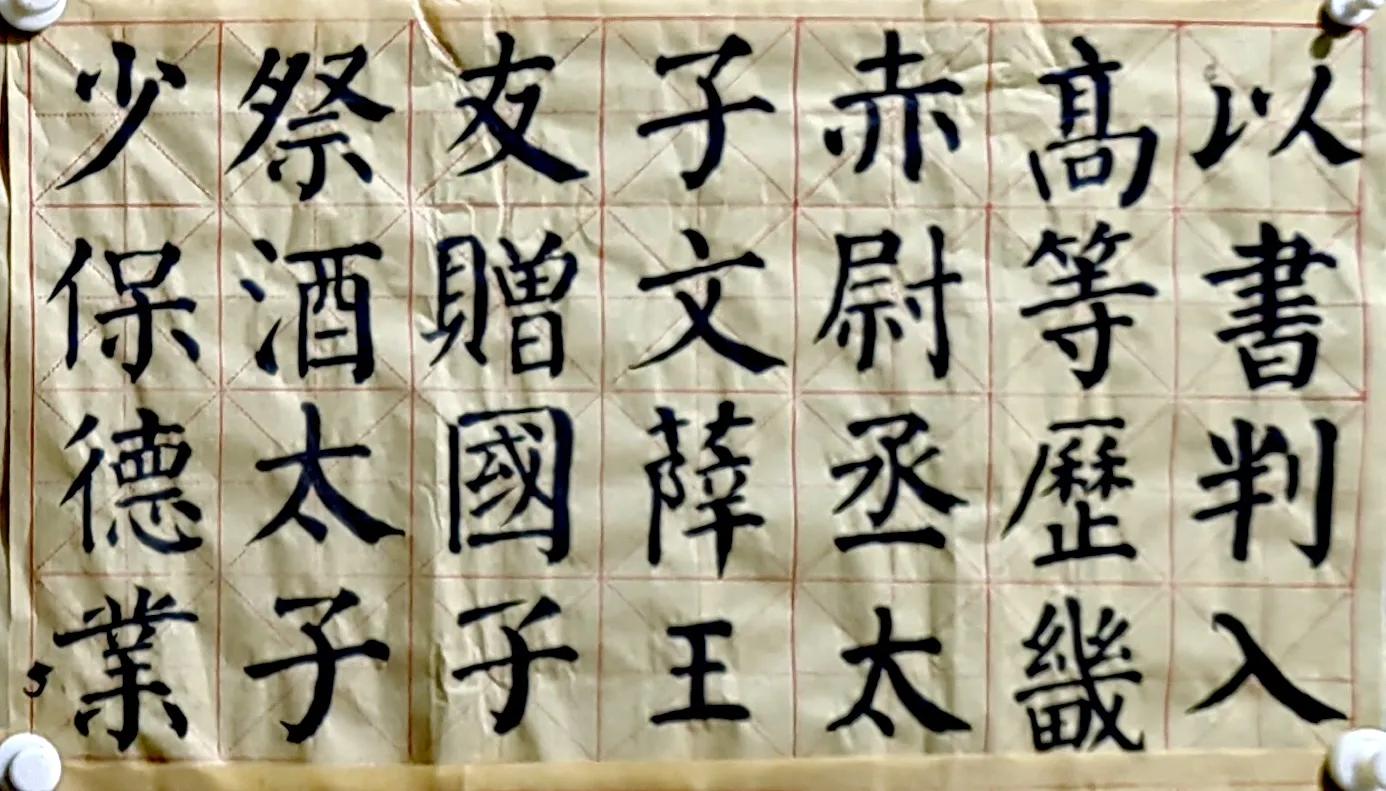 以書判入
高等歷畿
赤尉丞太
子文薛王
友贈國子
祭酒太子
少保德業
5